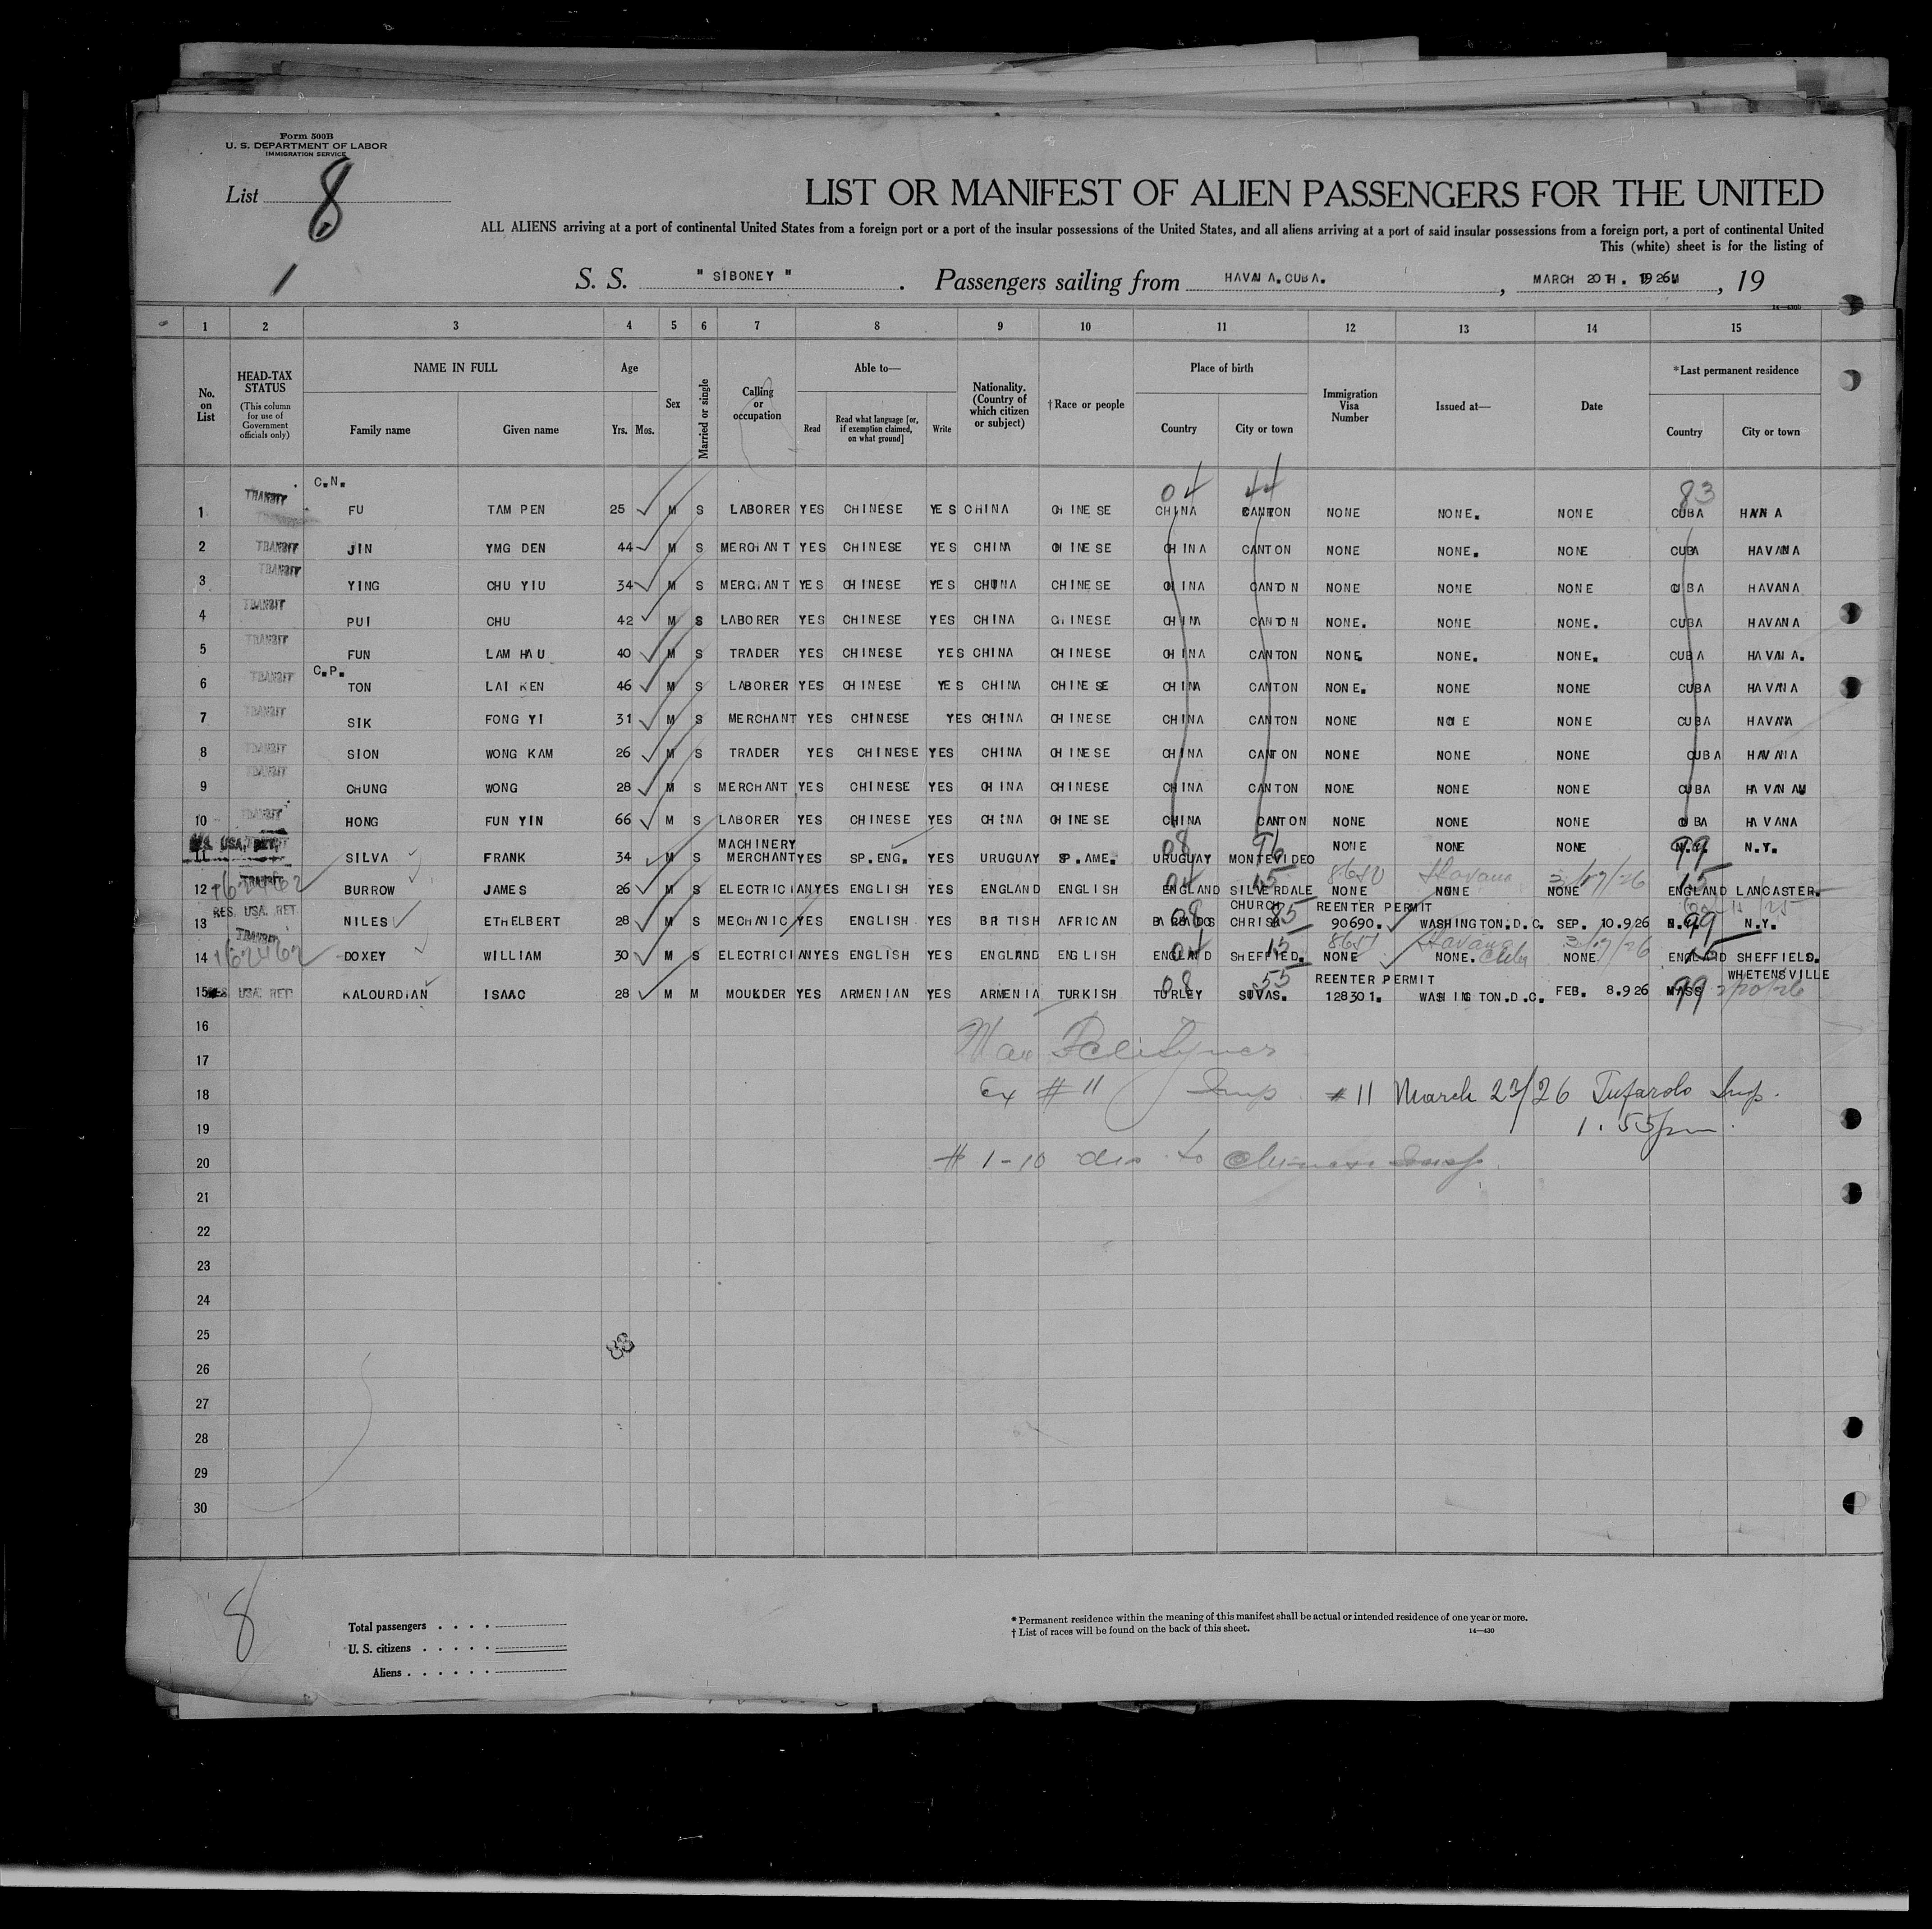 Form 500B
U. S. DEPARTMENT OF LABOR
IMMIGRATION SERVICE
List 8
1
LIST OR MANIFEST OF ALIEN PASSENGERS FOR THE UNITED
ALL ALIENS arriving at a port of continental United States from a foreign port or a port of the insular possessions of the United States, and all aliens arriving at a port of said insular possessions from a foreign port, a port of continental United
This (white) sheet is for the listing of
S. S. " SIBONEY " . Passengers sailing from HAVANA.CUBA. , MARCH 20TH. 1926 , 19
14—430b
1 2 3 4 5 6 7 8 9 10 11 12 13 14 15
No. on List
HEAD-TAX STATUS
(This column for use of Government officials only)
NAME IN FULL
Family name Given name
Age
Yrs. Mos.
Sex
Married or single
Calling or occupation
Able to—
Read
Read what language [or, if exemption claimed, on what ground]
Write
Nationality. (Country of which citizen or subject)
†Race or people
Place of birth
Country City or town
Immigration Visa Number
Issued at—
Date
*Last permanent residence
Country City or town
C.N.
04 44 83
1 TRANSIT FU TAM PEN 25 M S LABORER YES CHINESE YES CHINA CHINESE CHINA CANTON NONE NONE. NONE CUBA HAVANA
2 TRANSIT JIN YMG DEN 44 M S MERCHANT YES CHINESE YES CHINA CHINESE CHINA CANTON NONE NONE. NONE CUBA HAVANA
3 TRANSIT YING CHU YIU 34 M S MERCHANT YES CHINESE YES CHUNA CHINESE CHINA CANTON NONE NONE NONE CUBA HAVANA
4 TRANSIT PUI CHU 42 M S LABORER YES CHINESE YES CHINA CHINESE CHINA CANTON NONE. NONE NONE. CUBA HAVANA
5 TRANSIT FUN LAM HAU 40 M S TRADER YES CHINESE YES CHINA CHINESE CHINA CANTON NONE. NONE. NONE. CUBA HAVANA.
C.P.
6 TRANSIT TON LAI KEN 46 M S LABORER YES CHINESE YES CHINA CHINESE CHINA CANTON NONE. NONE NONE CUBA HAVANA
7 TRANSIT SIK FONG YI 31 M S MERCHANT YES CHINESE YES CHINA CHINESE CHINA CANTON NONE NONE NONE CUBA HAVANA
8 TRANSIT SION WONG KAM 26 M S TRADER YES CHINESE YES CHINA CHINESE CHINA CANTON NONE NONE NONE CUBA HAVANA
9 TRANSIT CHUNG WONG 28 M S MERCHANT YES CHINESE YES CHINA CHINESE CHINA CANTON NONE NONE NONE CUBA HAVANA
10 TRANSIT HONG FUN YIN 66 M S LABORER YES CHINESE YES CHINA CHINESE CHINA CANTON NONE NONE NONE CUBA HAVANA
MACHINERY 08 96 99
11 USA. RET. SILVA FRANK 34 M S MERCHANT YES SP.ENG. YES URUGUAY SP.AME. URUGUAY MONTEVIDEO NONE NONE NONE N.Y. N.Y.
04 15 8650 Havana 3/17/26 15
12 TRANSIT BURROW JAMES 26 M S ELECTRICIAN YES ENGLISH YES ENGLAND ENGLISH ENGLAND SILVERDALE NONE NONE NONE ENGLAND LANCASTER.
08 CHURCH 85 REENTER PERMIT 99
13 RES. USA. RET. NILES ETHELBERT 28 M S MECHANIC YES ENGLISH YES BRITISH AFRICAN BARBADOS CHRIS 90690. WASHINGTON.D.C. SEP. 10.926 N.Y. N.Y.
162462 04 15 8651 Havana Cuba 3/17/26 15
14 TRANSIT DOXEY WILLIAM 30 M S ELECTRICIAN YES ENGLISH YES ENGLAND ENGLISH ENGLAND SHEFFIED. NONE NONE. NONE ENGLAND SHEFFIELD.
08 55 REENTER PERMIT 99 WHETENSVILLE
15 RES USA. RET. KALOURDIAN ISAAC 28 M M MOULDER YES ARMENIAN YES ARMENIA TURKISH TURLEY SIVAS. 128301. WASHINGTON.D.C. FEB. 8.926 MASS
16
17
18 Ex # 11 Insp # 11 March 23/26 Tufarolo Insp.
19 1.55 pm.
20 # 1-10 des to Chinese Insp.
21
22
23
24
25
26
27
28
29
30
8
Total passengers
U. S. citizens
Aliens
* Permanent residence within the meaning of this manifest shall be actual or intended residence of one year or more.
† List of races will be found on the back of this sheet.
14—430